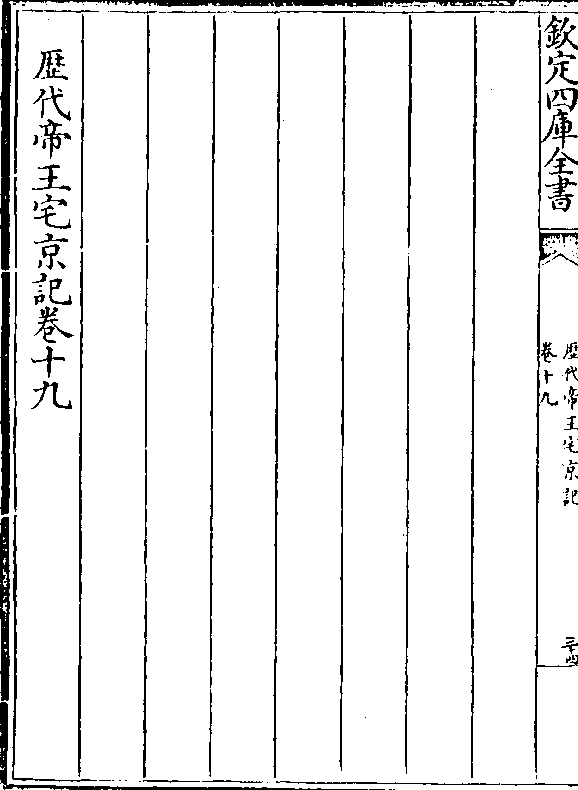 欽定四庫全書
歷代帝王宅京記
卷十九
三十四
歷代帝王宅京記卷十九